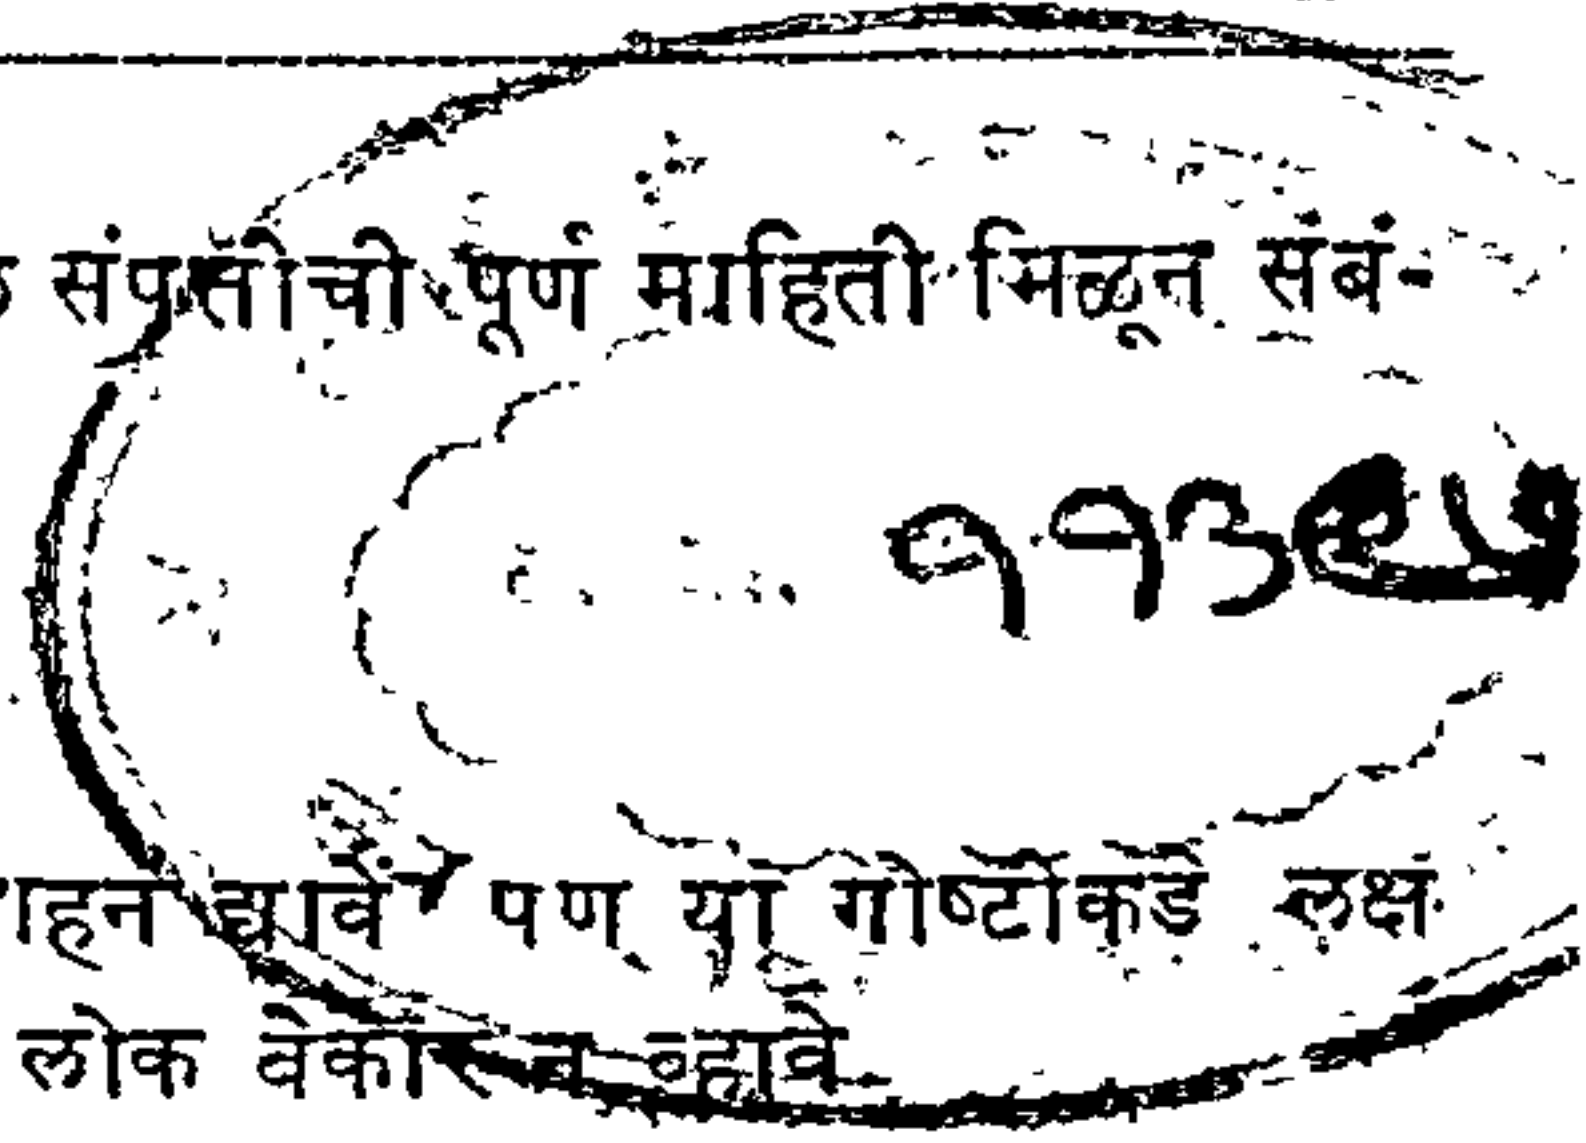 संपत्तीची पूर्ण माहिती मिळून संबं-
द्यावें पण या गोष्टींकडे लक्ष
लोक बेकार न व्हावे